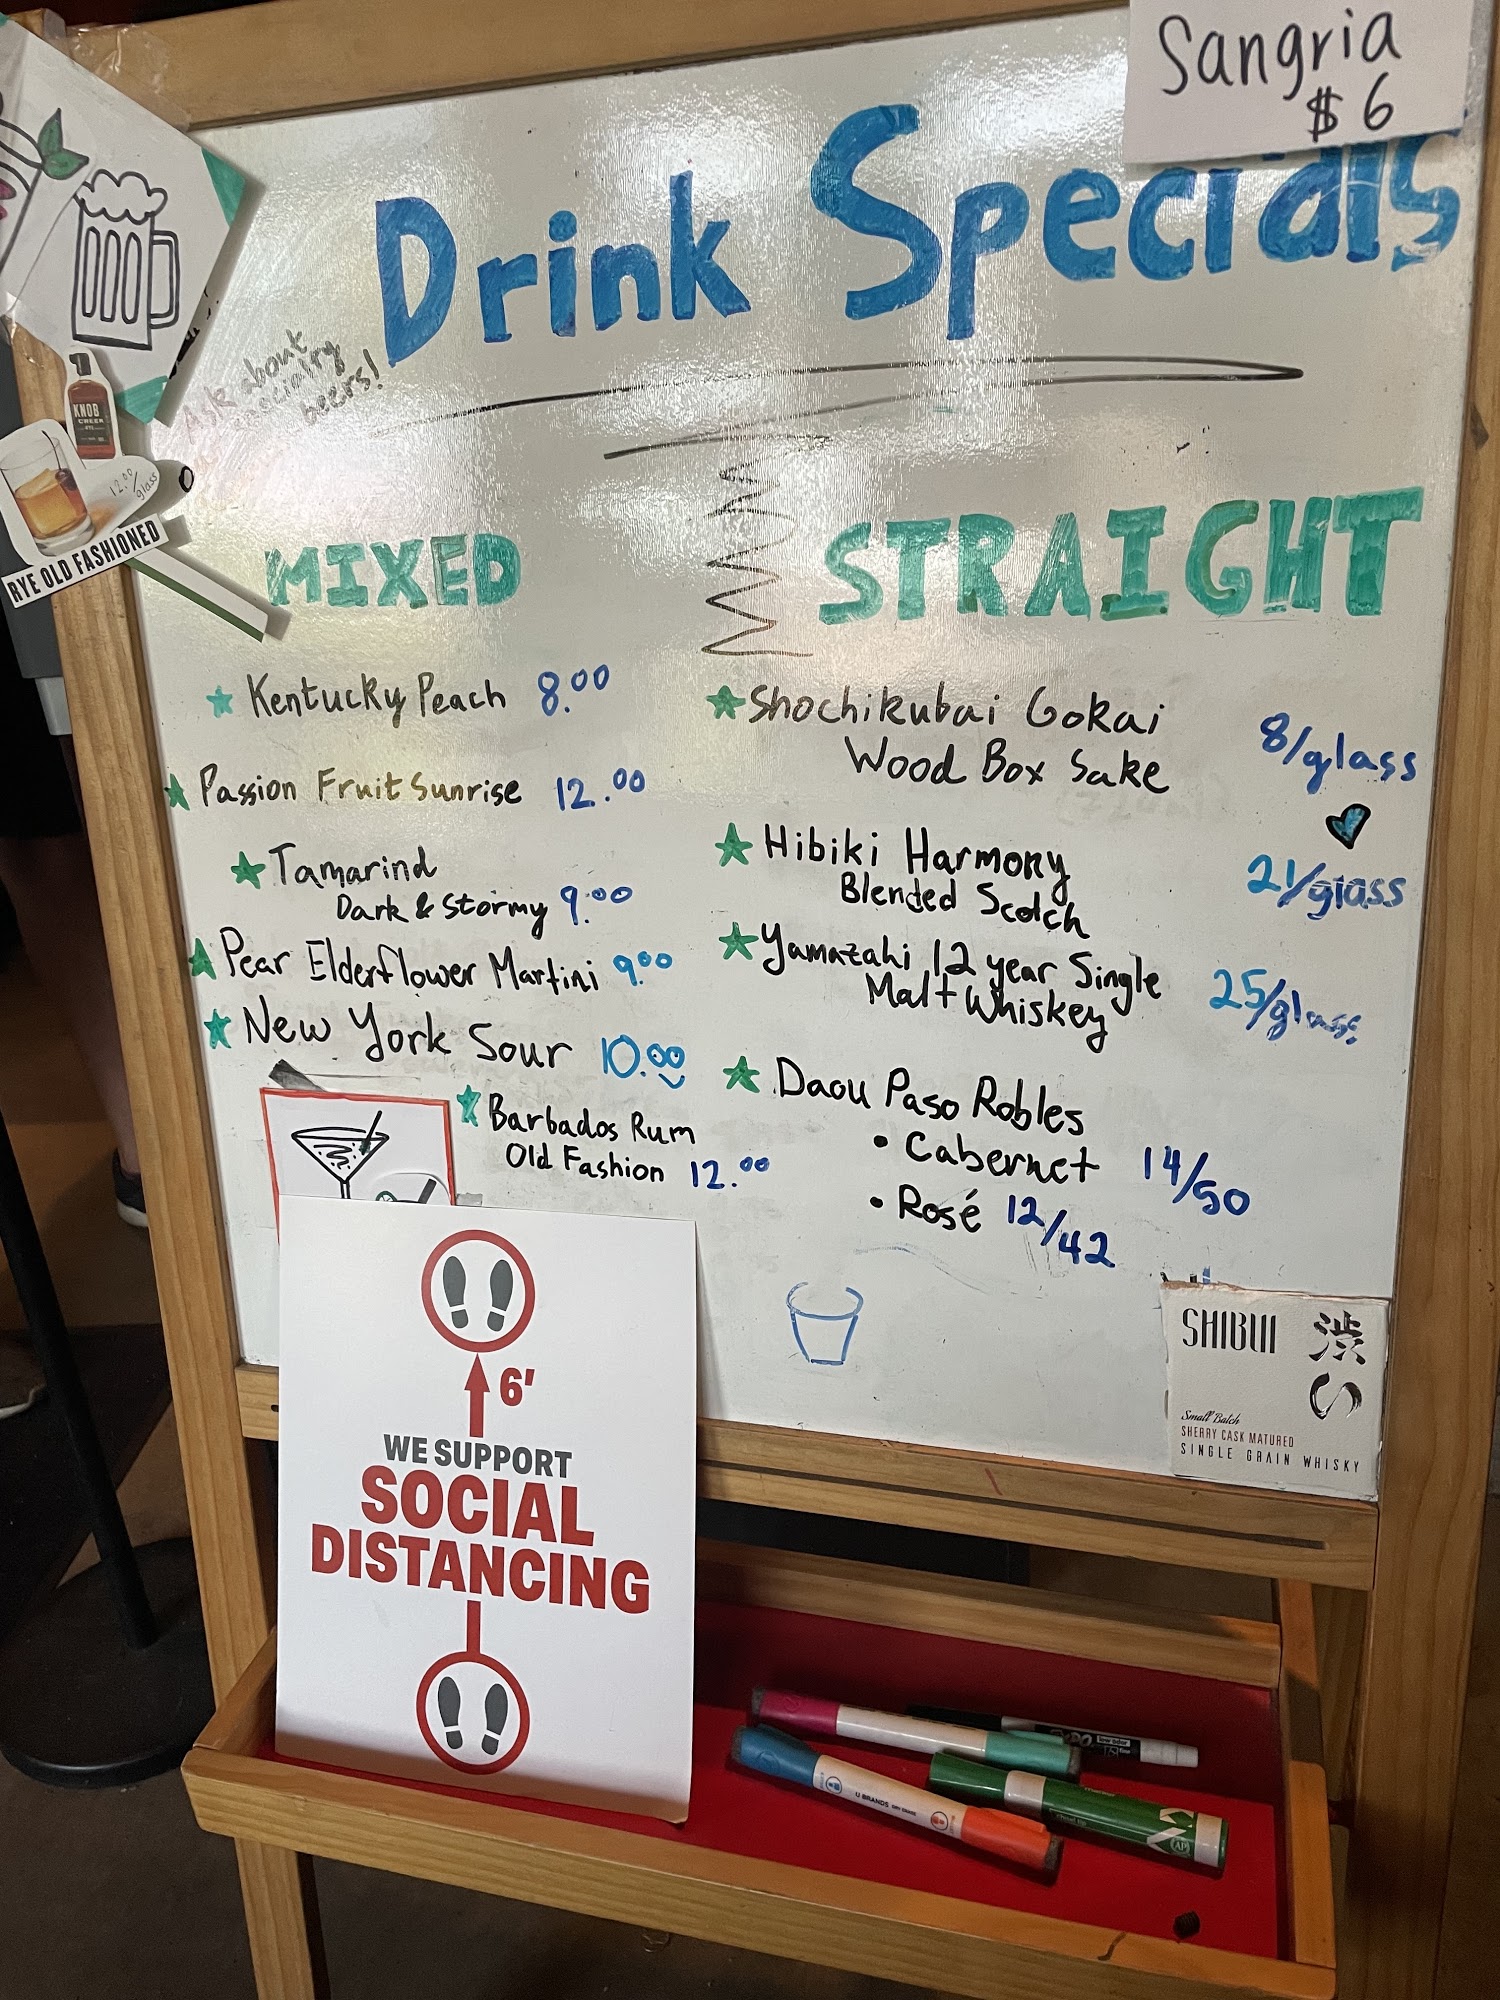 Sangria
$6
Drink Specials
Ask about
specialty
beers!
KNOB
CREEK
12.00/
glass
RYE OLD FASHIONED
MIXED
Kentucky Peach 8.00
Passion Fruit Sunrise 12.00
Tamarind
Dark & Stormy 9.00
Pear Elderflower Martini 9.00
New York Sour 10.00
Barbados Rum
Old Fashion 12.00
STRAIGHT
Shochikubai Gokai
Wood Box Sake 8/glass
Hibiki Harmony
Blended Scotch 21/glass
Yamazahi 12 year Single
Malt Whiskey 25/glass
Daou Paso Robles
• Cabernet 14/50
• Rosé 12/42
SHIBUI 渋
Small Batch
SHERRY CASK MATURED
SINGLE GRAIN WHISKY
6'
WE SUPPORT
SOCIAL
DISTANCING
EXPO low odor
U BRANDS